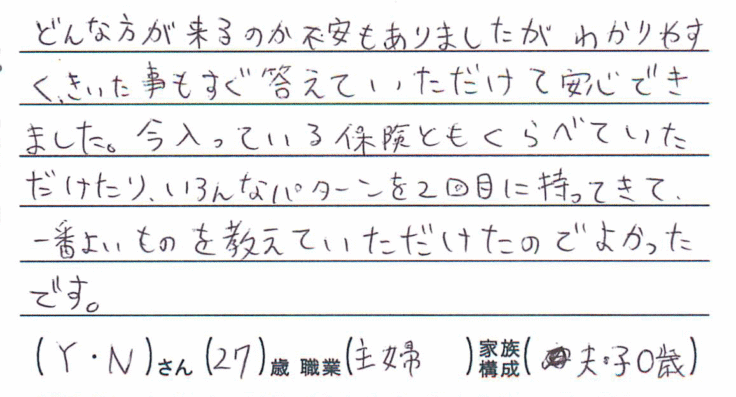 どんな方が来るのか不安もありましたが わかりやす
く、きいた事もすぐ答えていただけて安心でき
ました。今入っている保険ともくらべていた
だけたり、いろんなパターンを2回目に持ってきて、
一番よいものを教えていただけたのでよかった
です。
(Y・N)さん(27)歳 職業(主婦 )家族構成( 夫・子0歳)